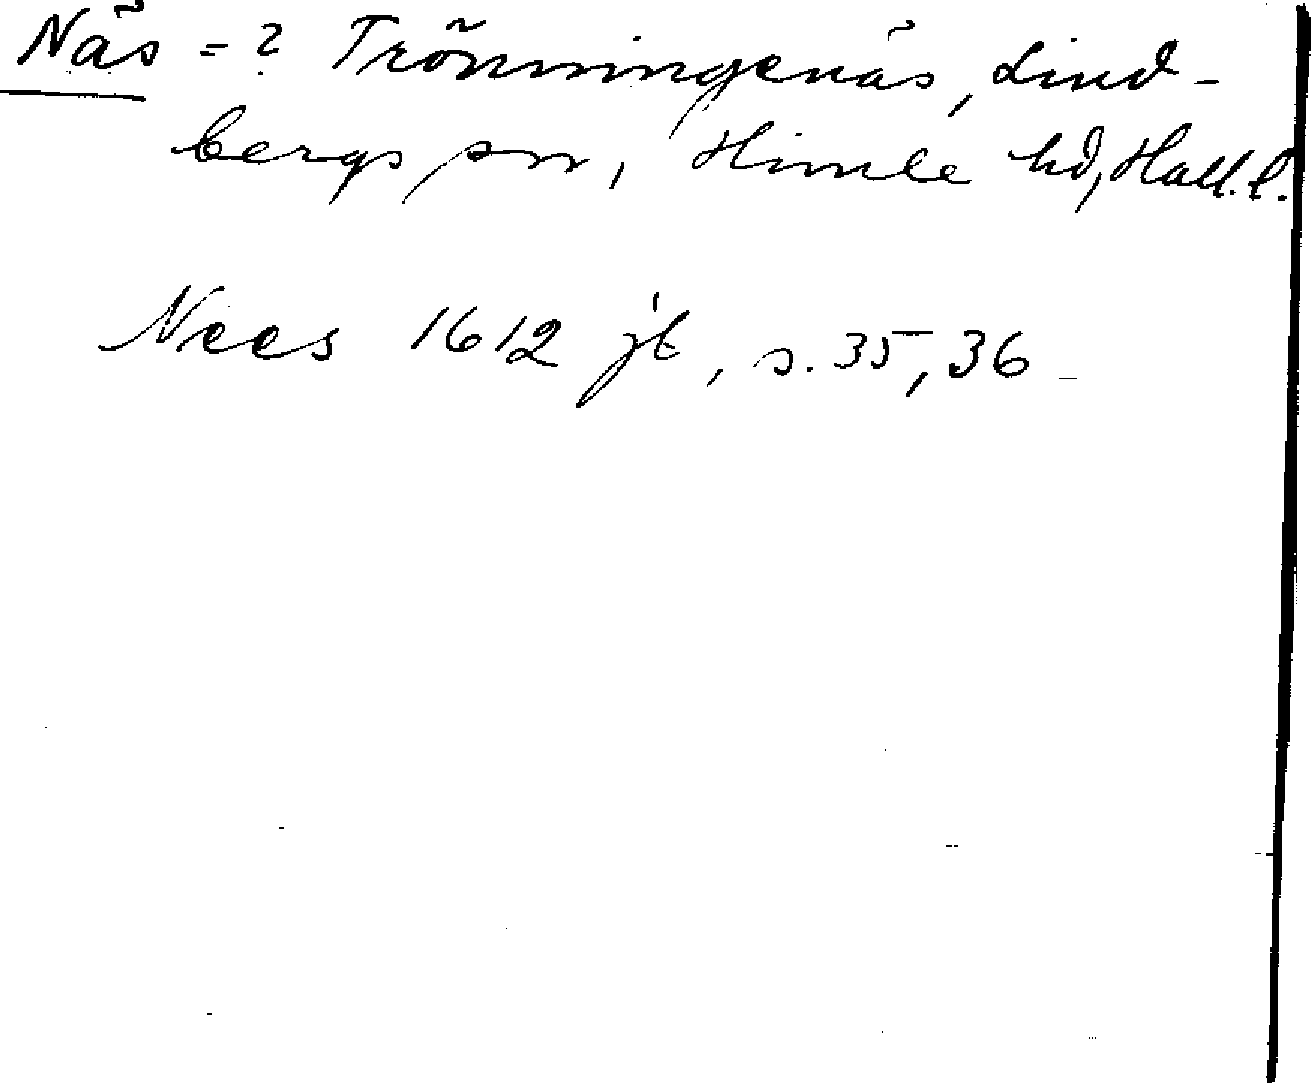 Näs = ? Trönningenäs, Lind-
bergs sn, Himle hd, Hall. l.
Nees 1612 jb, s. 35, 36